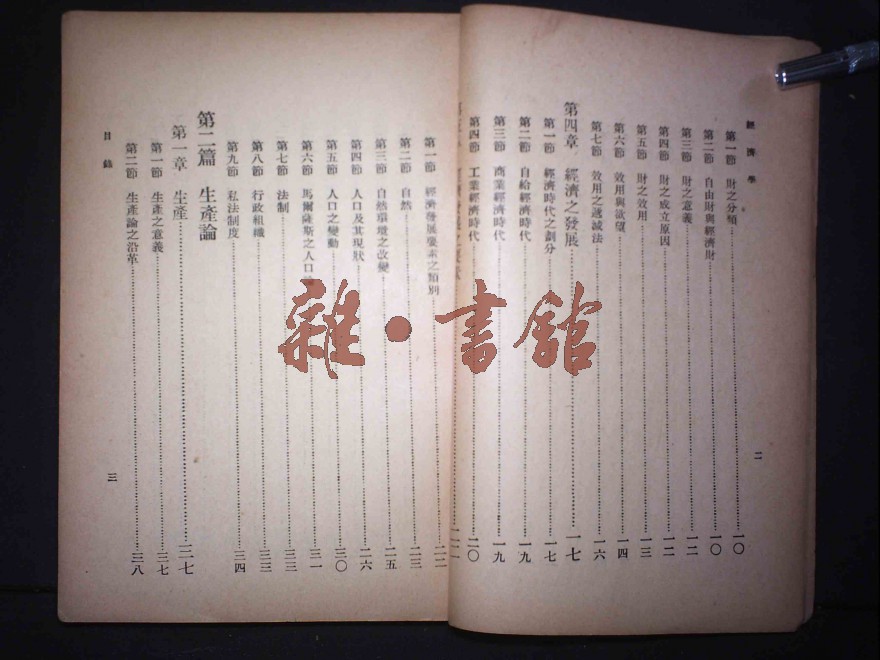 經濟學
第一節 財之分類 一〇
第二節 自由財與經濟財 一〇
第三節 財之意義 一二
第四節 財之成立原因 一二
第五節 財之效用 一三
第六節 效用與欲望 一四
第七節 效用之遞減法 一六
第四章 經濟之發展 一七
第一節 經濟時代之劃分 一七
第二節 自給經濟時代 一九
第三節 商業經濟時代 一九
第四節 工業經濟時代 二〇
二
第一節 經濟發展要素之類別 二二
第二節 自然 二三
第三節 自然環境之改變 二五
第四節 人口及其現狀 二六
第五節 人口之變動 三〇
第六節 馬爾薩斯之人口 三一
第七節 法制 三三
第八節 行政組織 三三
第九節 私法制度 三四
第二篇 生產論
第一章 生產 三七
第一節 生產之意義 三七
第二節 生產論之沿革 三八
目錄
三
雜·書館